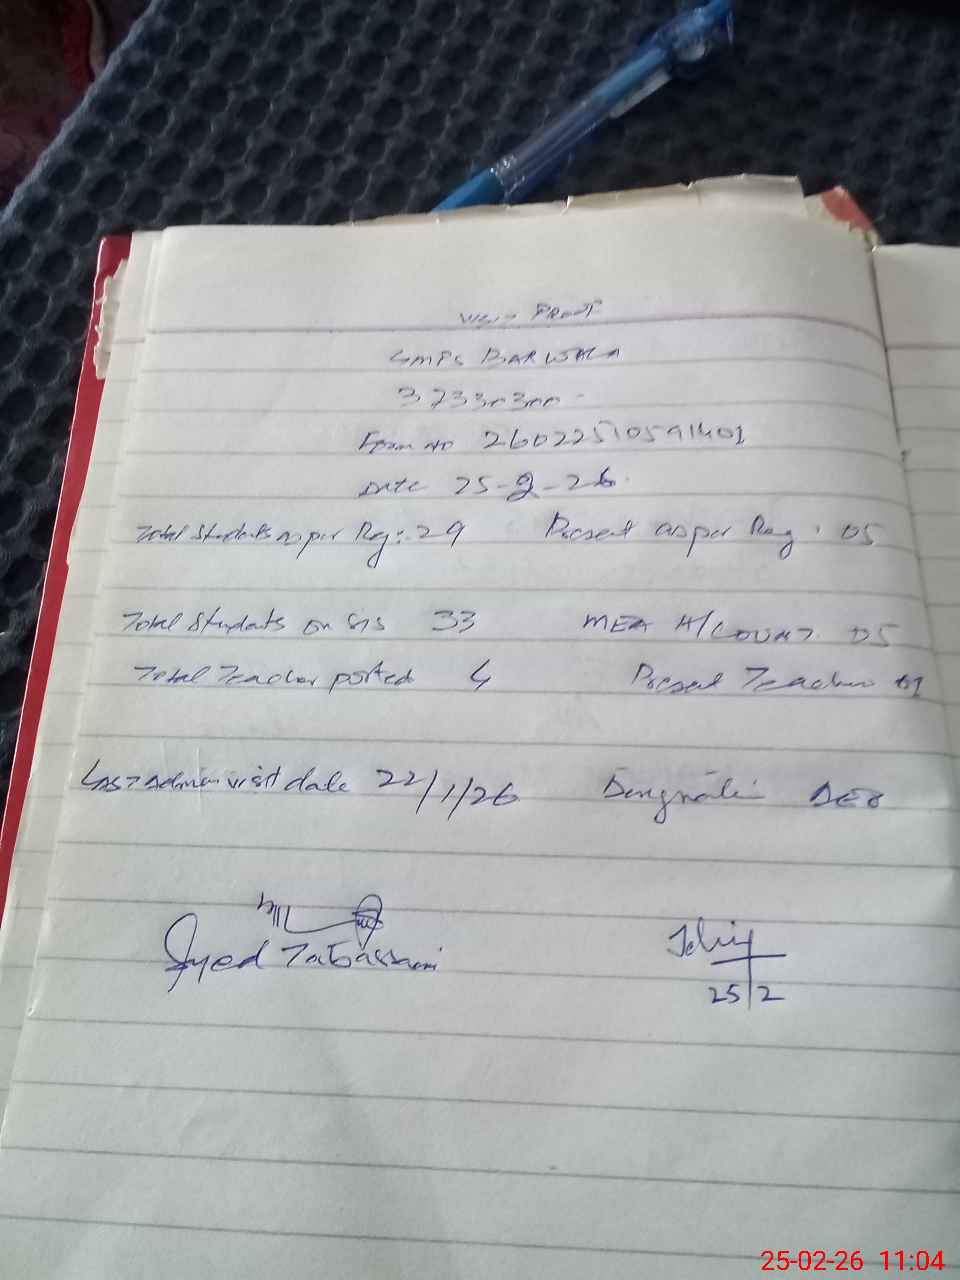 Visit PROOF
GMPS BARWALA
37330300
Form no 26022510591401
Date 25-2-26
Total Students as per Reg: 29 Present as per Reg: 05
Total Students on SIS 33 MEA H/COUNT 05
Total Teacher posted 4 Present Teacher 01
Last Admin visit date 22/1/26 Designation DEO
Syed Tabassam
25/2
25-02-26 11:04